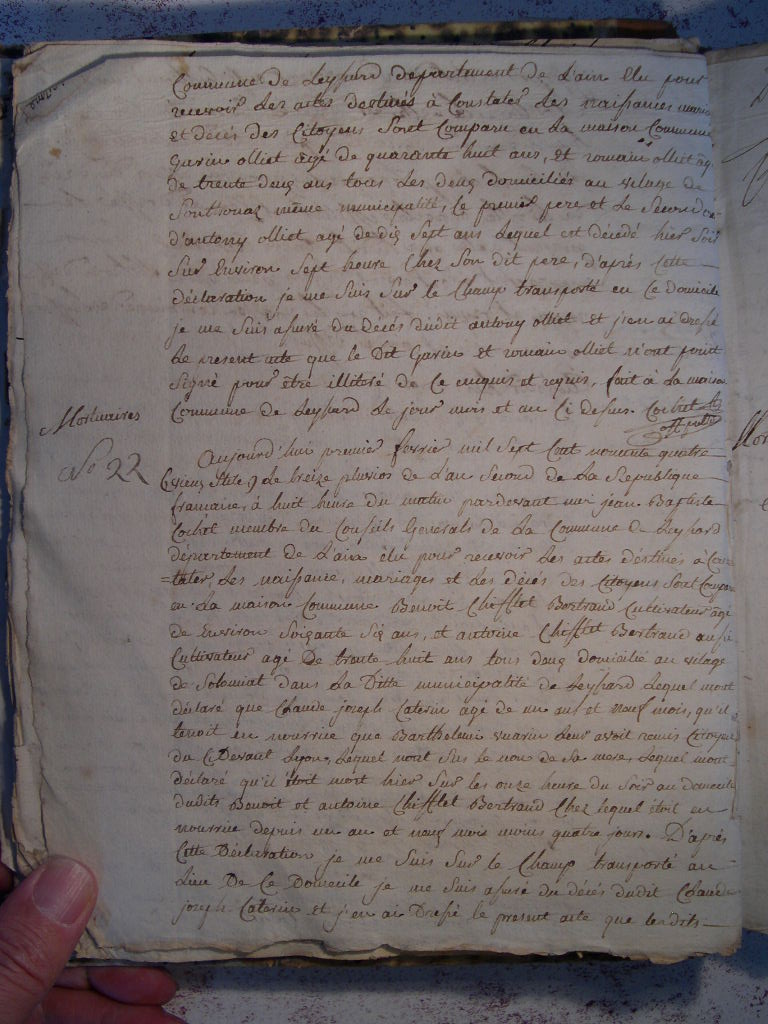 Commune de Leyssard département de L'ain Elu pour
recevoir Les actes destinés à Constater Les naissances maria
et décés des Citoyens Sont Comparu en La maison Commune
Garin olliet agé de quarante huit ans, et romain olliet ag
de trente deux ans tous Les deux domiciliés au vilage de
même municipalité, Le premier pere et Le Second
d'antony olliet agé de dix Sept ans Lequel est décédé hier Soir
Sur Environ Sept heure Chez Son dit pere, d'après Cette
déclaration je me Suis Sur le Champ transporté en Ce domicile
je me Suis assuré du décés dudit antony olliet et j'en ai dressé
Le present acte que le Dit Garin et romain olliet n'ont point
Signé pour être illitéré de Ce enquis et requis, fait à La maison
Commune de Leyssard Le jour mois et an Ci desus. Corbet
off. pub.
Mortuaires
No 22
Aujourd'hui premier fevrier mil Sept Cent nonante quatre
(vieux Stile) Le treize pluvios de L'an Second de La Republique
francaise, à huit heure du matin pardevant moi jean Baptiste
Corbet membre du Conseils Generals de La Commune de Leyssard
département de L'ain élu pour recevoir Les actes déstines à Cons
=tater, Les naissance, mariages et Les décés des Citoyens Sont Compar
en La maison Commune Benoit Chifflet Bertrand Cultivateur agé
de Environ Soixante Six ans, et antoine Chifflet Bertrand aussi
Cultivateur agé De trante huit ans tous deux domicilié au vilage
de Solomiat dans La Ditte municipalité de Leyssard Lequel mont
déclaré que Claude joseph Caterin agé de un ans et Neuf mois, qu'il
tenoit en nourrice que Barthelemi vuarin Leur avoit remis Citoyen
du Cidevant Lyon, Lequel nont Sus le non de Sa mere, Lequel mont
déclaré qu'il étoit mort hier Sur les onze heure du Soir au domicile
dudits Benoit et antoine Chifflet Bertrand Chez lequel étoit en
nourrice depuis un an et neuf mois moins quatre jours. D'après
Cette Déclaration je me Suis Sur le Champ transporté au
Lieu De Ce Domicile je me Suis assuré du décés dudit Claude
joseph Caterin et j'en ai Dressé le present acte que lesdits